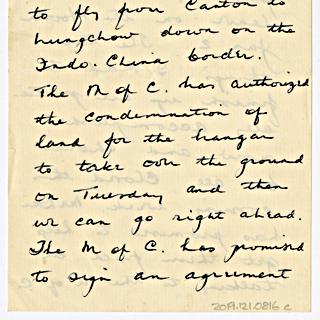 to fly from Canton to
Lungchow down on the
Indo. China border.
The M of C. has authorized
the condemnation of
land for the hangar
to take over the ground
on Tuesday and then
we can go right ahead.
The M of C. has promised
to sign an agreement
2019.121.0816 c